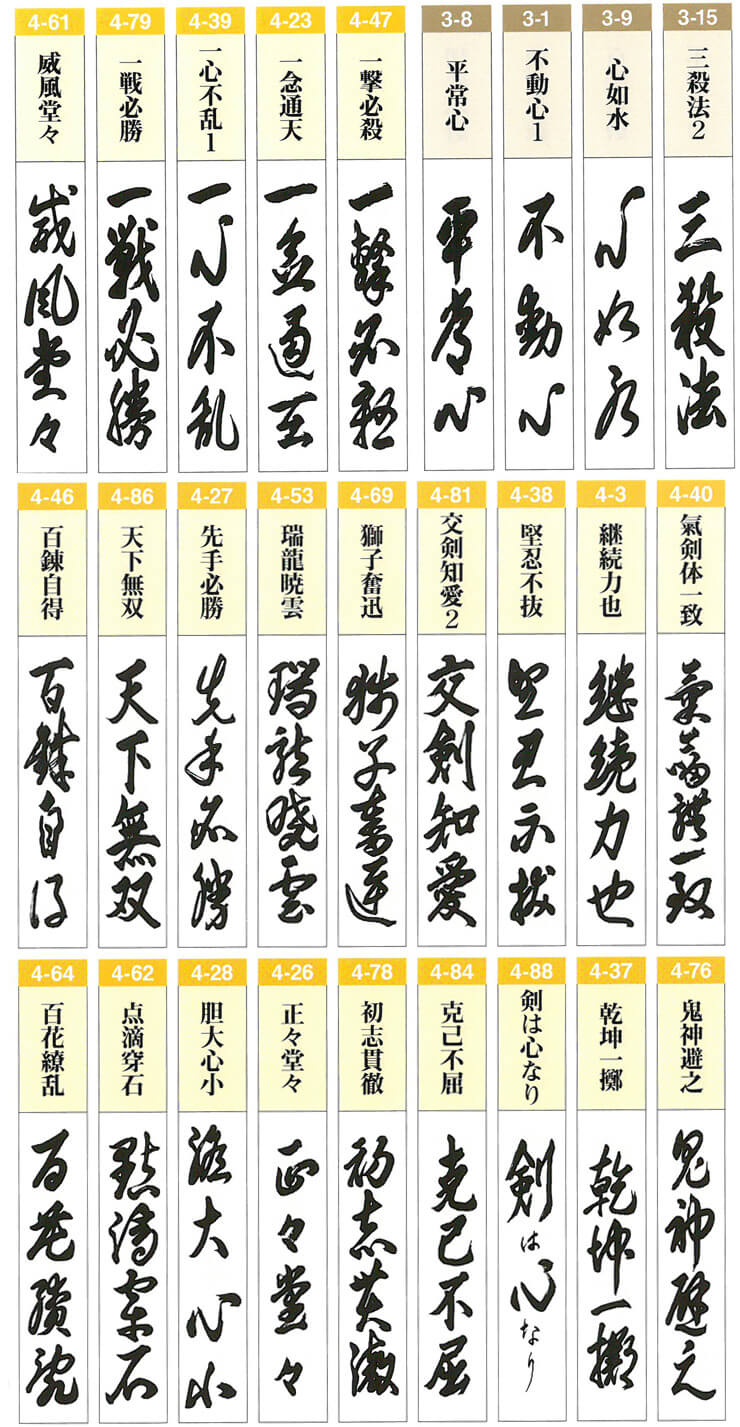 3-15
三殺法2
三殺法
3-9
心如水
心如水
3-1
不動心1
不動心
3-8
平常心
平常心
4-47
一撃必殺
一撃必殺
4-23
一念通天
一念通天
4-39
一心不乱1
一心不乱
4-79
一戦必勝
一戦必勝
4-61
威風堂々
威風堂々
4-40
氣剣体一致
氣剣体一致
4-3
継続力也
継続力也
4-38
堅忍不抜
堅忍不抜
4-81
交剣知愛2
交剣知愛
4-69
獅子奮迅
獅子奮迅
4-53
瑞龍暁雲
瑞龍暁雲
4-27
先手必勝
先手必勝
4-86
天下無双
天下無双
4-46
百錬自得
百錬自得
4-76
鬼神避之
鬼神避之
4-37
乾坤一擲
乾坤一擲
4-88
剣は心なり
剣は心なり
4-84
克己不屈
克己不屈
4-78
初志貫徹
初志貫徹
4-26
正々堂々
正々堂々
4-28
胆大心小
膽大心小
4-62
点滴穿石
點滴穿石
4-64
百花繚乱
百花繚乱